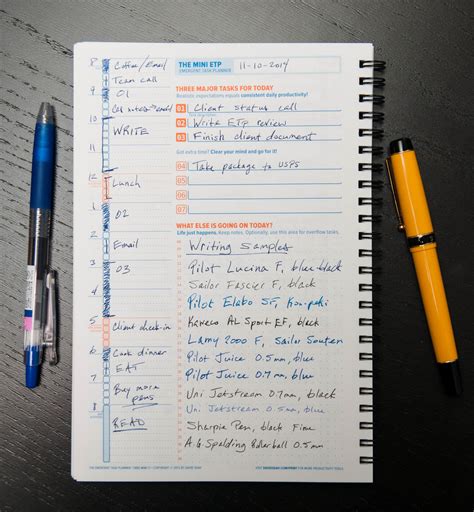 8 Coffee/Email
Team call
9 01
10
WRITE
11
12 Lunch
1
02
2 Email
3 03
4
5 Client check-in
6 Cook dinner
EAT
7 Buy more
pens
8 READ
THE MINI ETP
EMERGENT TASK PLANNER
11-10-2014
THREE MAJOR TASKS FOR TODAY
Realistic expectations equals consistent daily productivity!
01 Client status call
02 Write ETP review
03 Finish client document
Got extra time? Clear your mind and go for it!
04 Take package to USPS
05
06
07
WHAT ELSE IS GOING ON TODAY?
Life just happens. Keep notes. Optionally, use this area for overflow tasks.
Writing Samples
Pilot Lucina F, blue-black
Sailor Fascier F, black
Pilot Elabo SF, Kon-peki
Kaweco AL Sport EF, black
Lamy 2000 F, Sailor Souten
Pilot Juice 0.5mm, blue
Pilot Juice 0.7mm, blue
Uni Jetstream 0.7mm, black
Uni Jetstream 0.5mm, blue
Sharpie Pen, black Fine
A.G. Spalding Rollerball 0.5mm
FOR MORE PRODUCTIVITY TOOLS